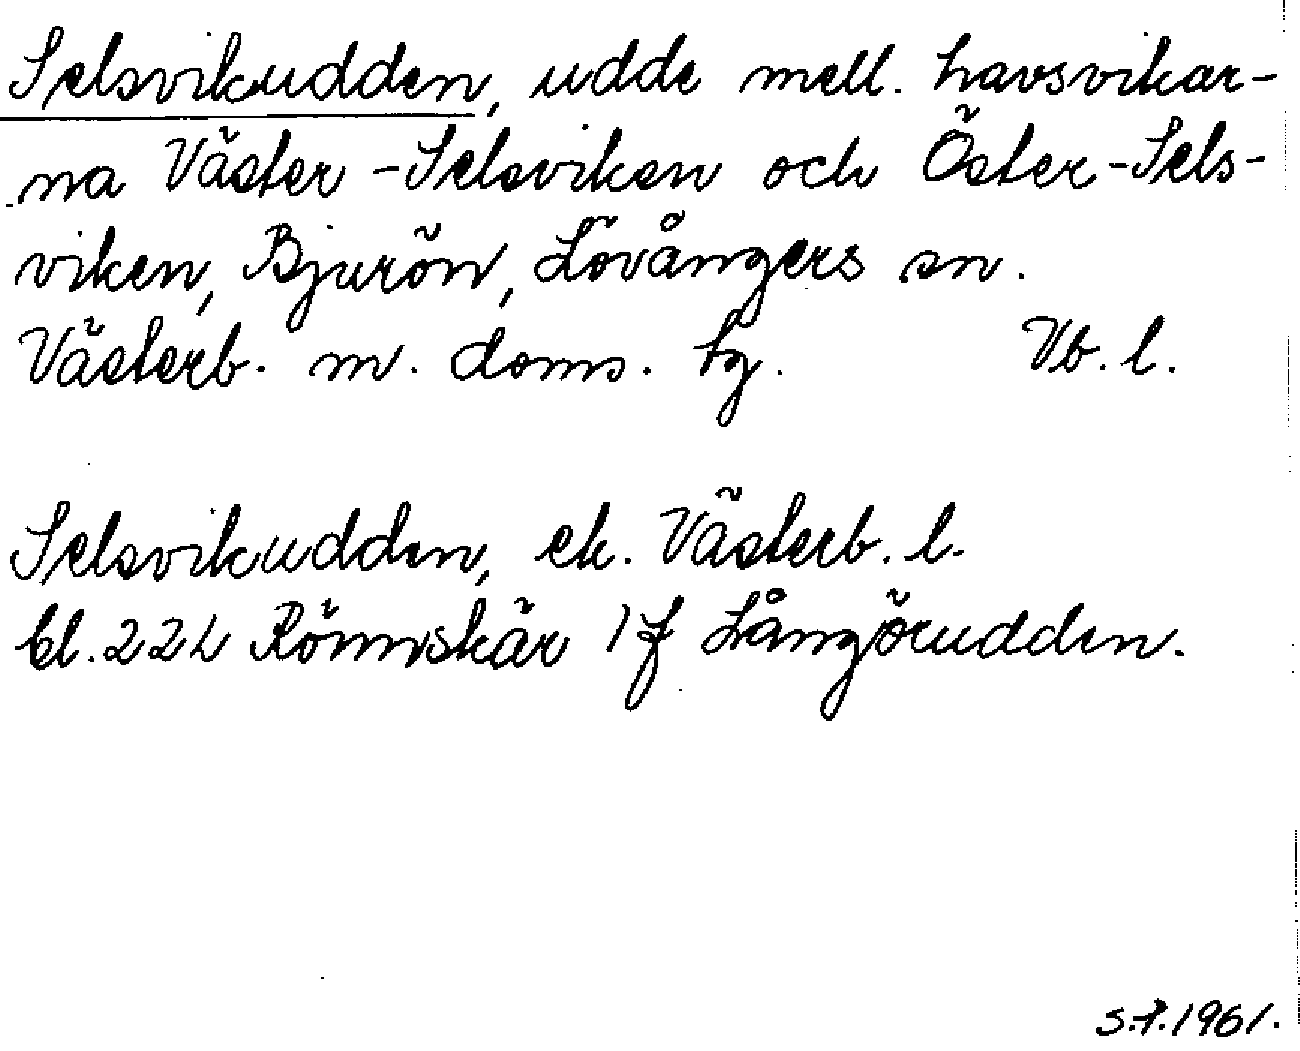 Selsvikudden, udde mell. havsvikar-
na Väster-Selsviken och Öster-Sels-
viken, Bjurön, Lövångers sn.
Västerb. m. doms. tg. Vb. l.
Selsvikudden, ek. Västerb. l.
bl. 22L Rönnskär 1f Långörudden.
S.P. 1961.